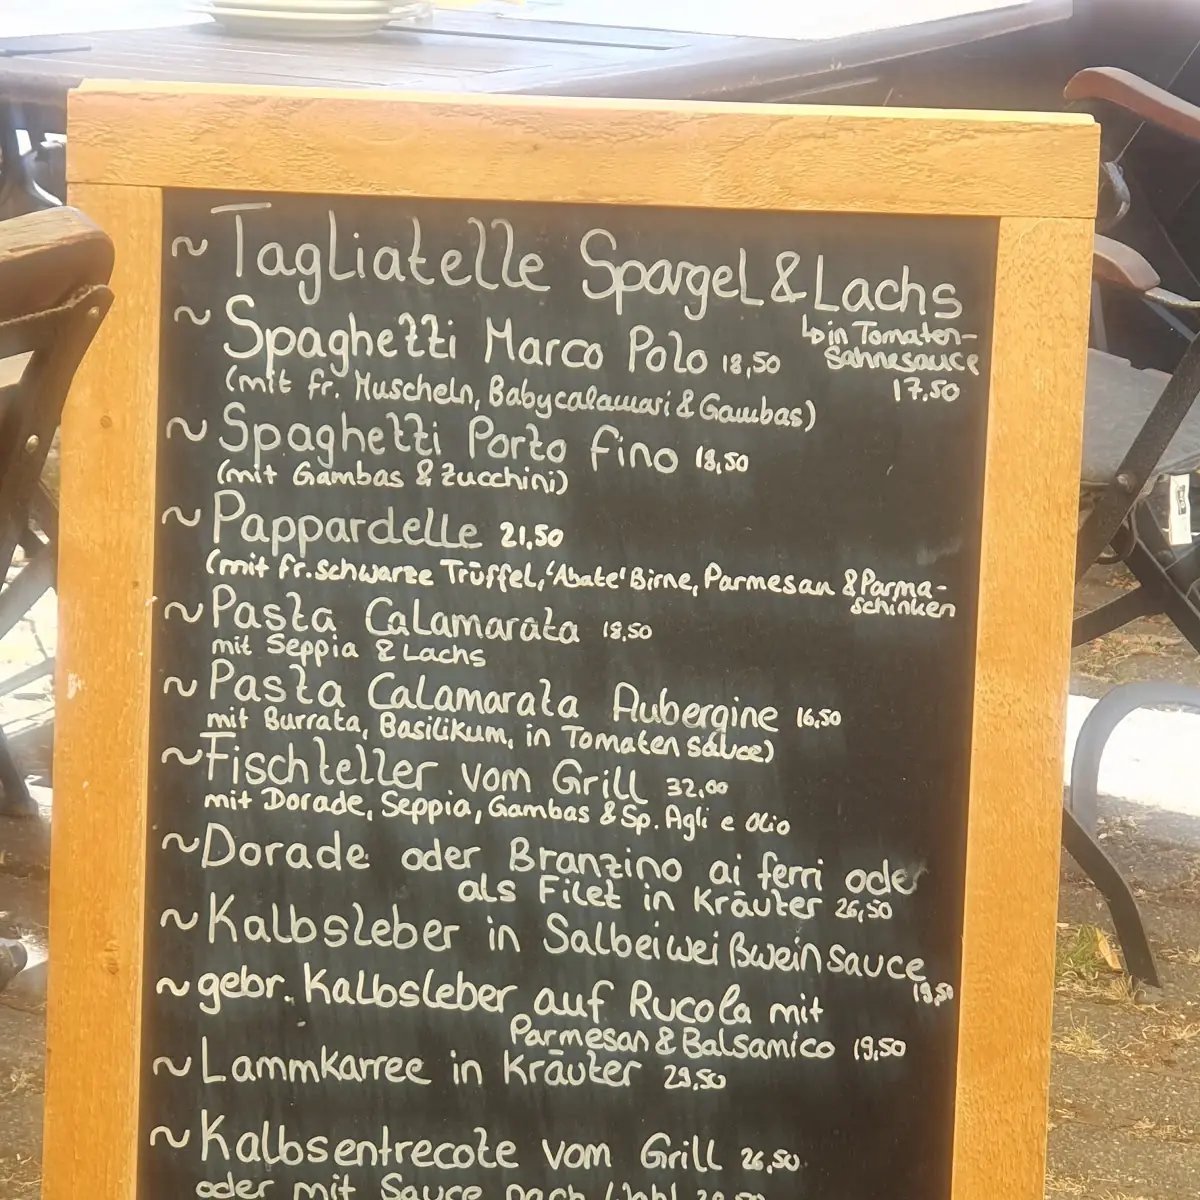 ~ Tagliatelle Spargel & Lachs
↳ in Tomaten-
Sahnesauce
17.50
~ Spaghetti Marco Polo 18,50
(mit fr. Muscheln, Babycalamari & Gambas)
~ Spaghetti Porto fino 18,50
(mit Gambas & Zucchini)
~ Pappardelle 21,50
(mit fr. schwarze Trüffel, 'Abate' Birne, Parmesan & Parma-
schinken
~ Pasta Calamarata 18,50
mit Seppia & Lachs
~ Pasta Calamarata Aubergine 16,50
mit Burrata, Basilikum, in Tomaten sauce)
~ Fischteller vom Grill 32,00
mit Dorade, Seppia, Gambas & Sp. Agli e Olio
~ Dorade oder Branzino ai ferri oder
als Filet in Kräuter 26,50
~ Kalbsleber in Salbeiweißwein sauce
~ gebr. Kalbsleber auf Rucola mit
Parmesan & Balsamico 19,50
~ Lammkarree in Kräuter 29,50
~ Kalbsentrecote vom Grill 26,50
oder mit Sauce nach Wahl